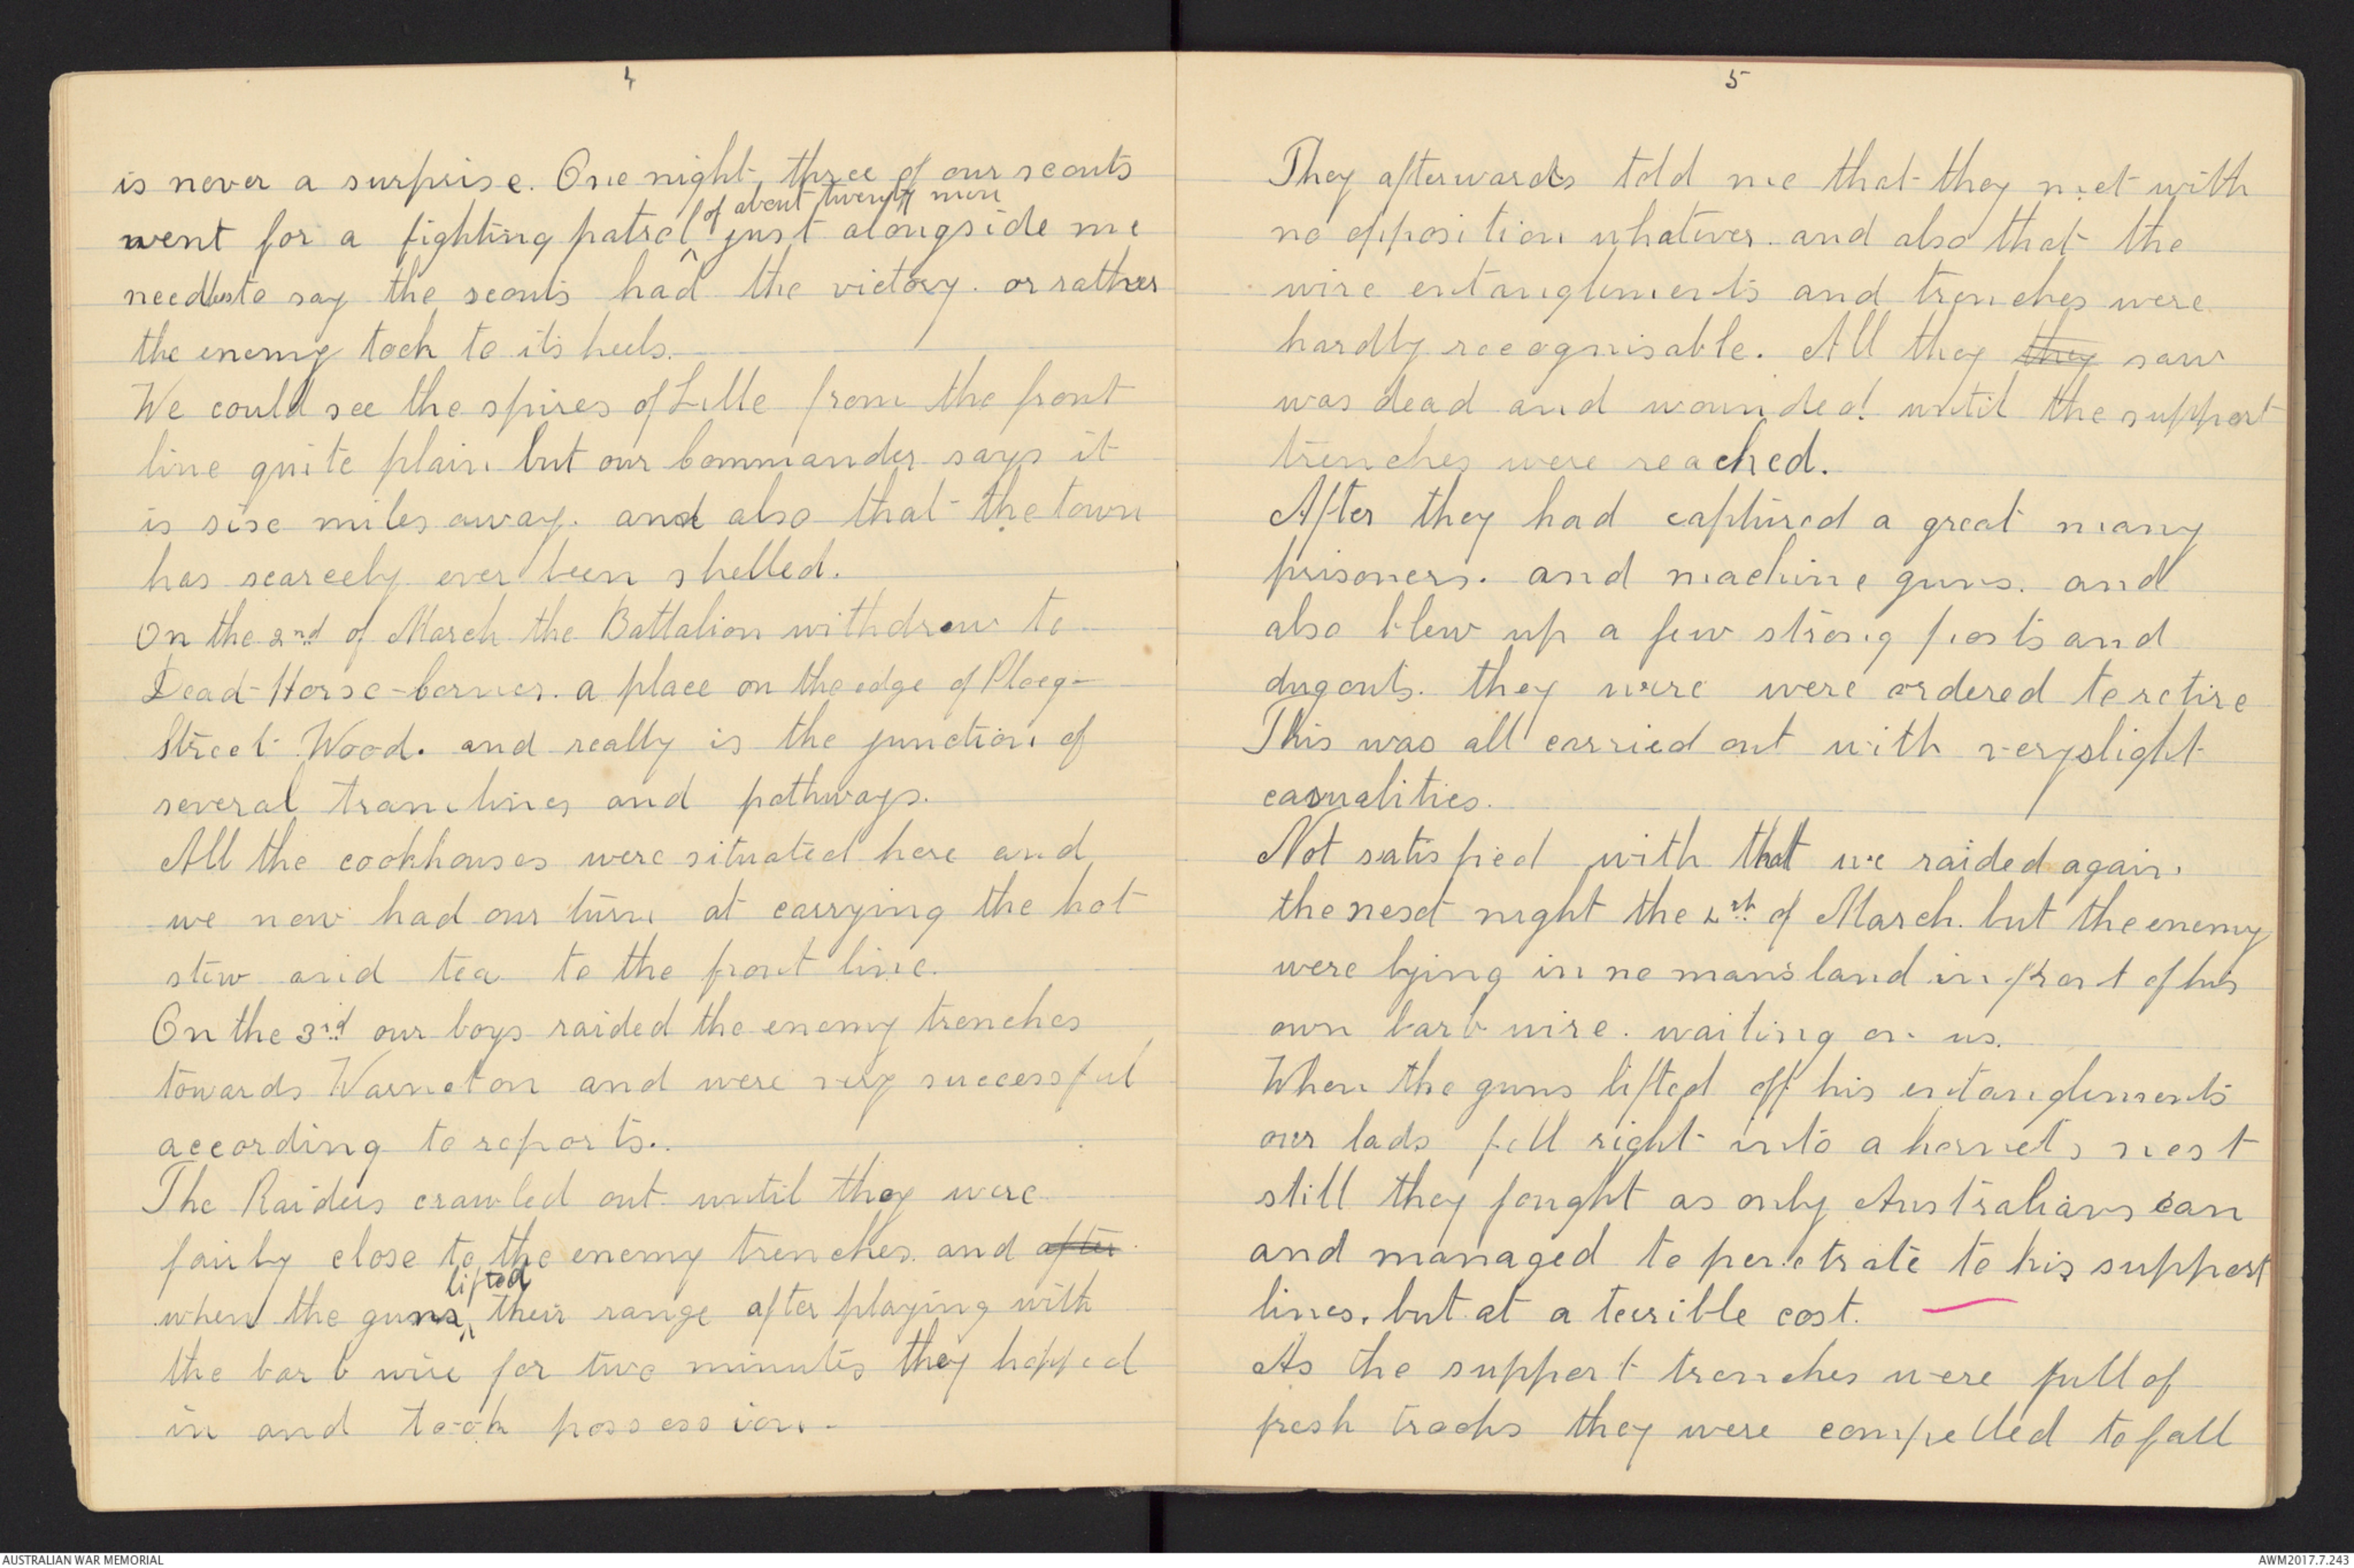 4
is never a surprise. One night, three of our scouts
of about twenty men
went for a fighting patrol just alongside me
needless to say the scouts had the victory. or rather
the enemy took to its heels.
We could see the spires of Lille from the front
line quite plain but our Commander says it
is six miles away. and also that the town
has scarcely ever been shelled.
On the 2nd of March the Battalion withdrew to
Dead-Horse-Corner. a place on the edge of Ploeg-
Street Wood. and really is the junction of
several tramlines and pathways.
All the cookhouses were situated here and
we now had our turn at carrying the hot
stew and tea to the front line.
On the 3rd our boys raided the enemy trenches
towards Warneton and were very successful
according to reports.
The Raiders crawled out until they were
fairly close to the enemy trenches and after
lifted
when the guns their range after playing with
the barb wire for two minutes they hopped
in and took possession.
5
They afterwards told me that they met with
no opposition whatever. and also that the
wire entanglements and trenches were
hardly recognisable. All they they saw
was dead and wounded until the support
trenches were reached.
After they had captured a great many
prisoners. and machine guns. and
also blew up a few strong posts and
dugouts. they were were ordered to retire
This was all carried out with very slight
casualities.
Not satisfied with that we raided again.
the next night the 4th of March. but the enemy
were lying in no mans land in front of his
own barb wire. waiting on us.
When the guns lifted off his entanglements
our lads fell right into a hornets nest
still they fought as only Australians can
and managed to penetrate to his support
lines. but at a terrible cost.
As the support trenches were full of
fresh troops they were compelled to fall
AUSTRALIAN WAR MEMORIAL
AWM2017.7.243